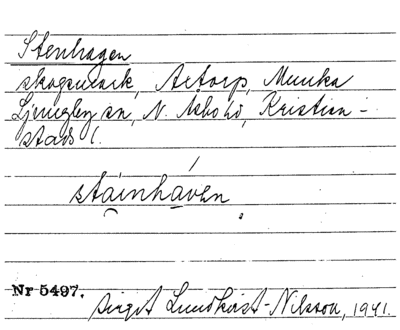 Stenhagen
skogsmark, Axtorp, Munka
Ljungby sn, N. Åsbo hd, Kristian-
stads l.
stáinháven
Nr 5497.
Birgit Lundkvist-Nilsson, 1941.